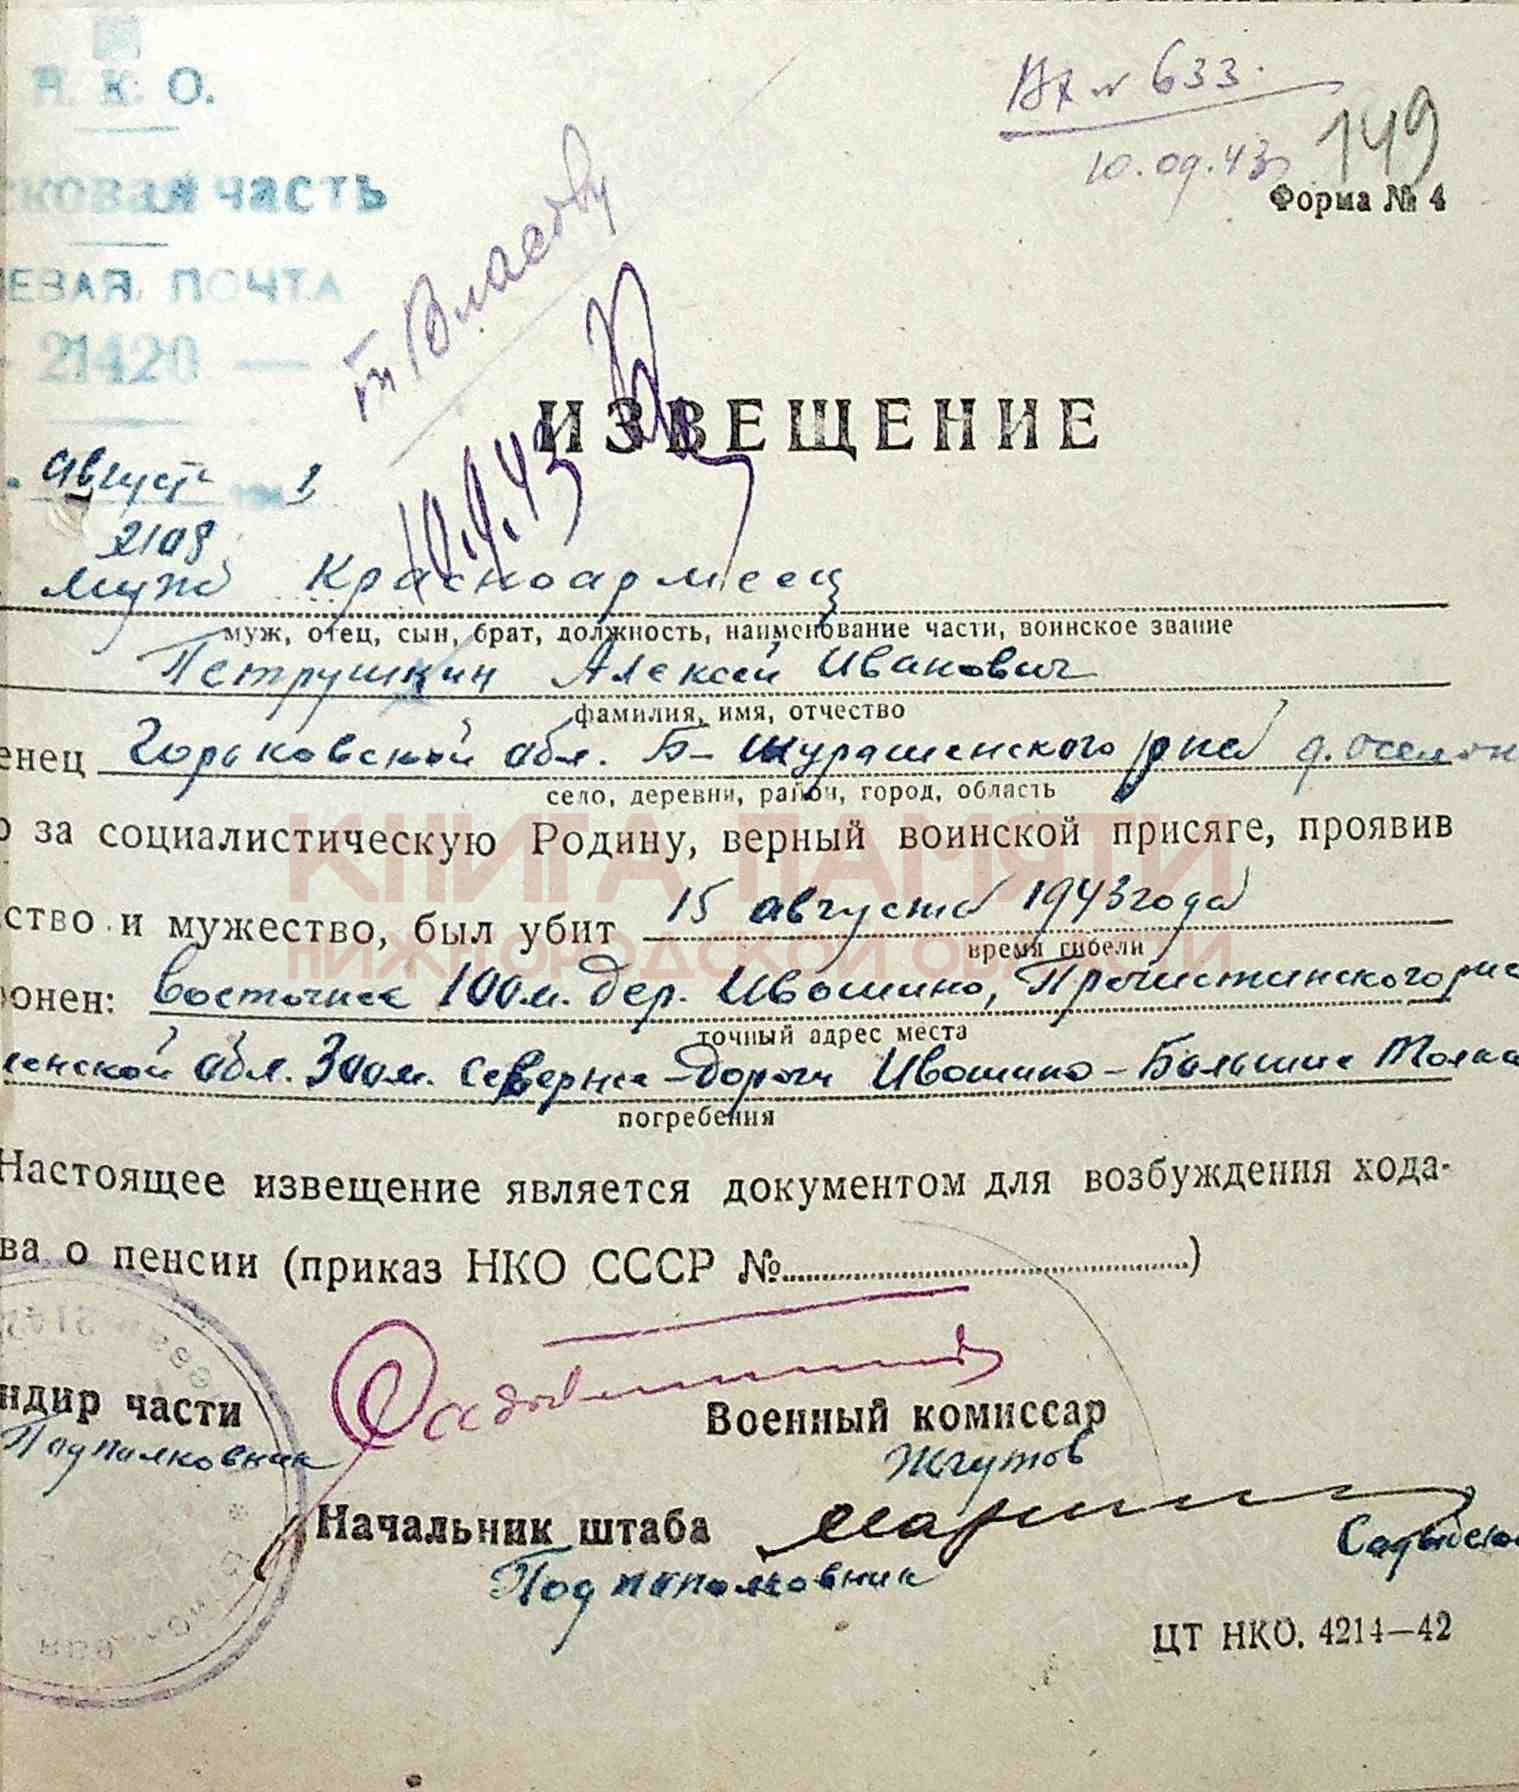 Н. К. О.
Вх № 633.
149
10.09.43
Форма № 4
сковая часть
ЛЕВАЯ ПОЧТА
21420 —
т. Власову
10.9.43
ИЗВЕЩЕНИЕ
август
2108
муж Красноармеец
муж, отец, сын, брат, должность, наименование части, воинское звание
Петрушкин Алексей Иванович
фамилия, имя, отчество
енец Горьковской обл. Б-
село, деревни, район, город, область
о за социалистическую Родину, верный воинской присяге, проявив
КНИГА ПАМЯТИ
ство и мужество, был убит 15 августа 1943 года
время гибели
НИЖНОГОРОДСКОЙ ОБЛАСТИ
онен: восточнее 100 м. дер. Ивошино,
точный адрес места
ленской обл. 300 м. севернее - дороги Ивошино - Большие
погребения
Настоящее извещение является документом для возбуждения хода-
ва о пенсии (приказ НКО СССР №)
ндир части
Подполковник
Военный комиссар
Жгутов
Начальник штаба
Подполковник
ЦТ НКО. 4214—42